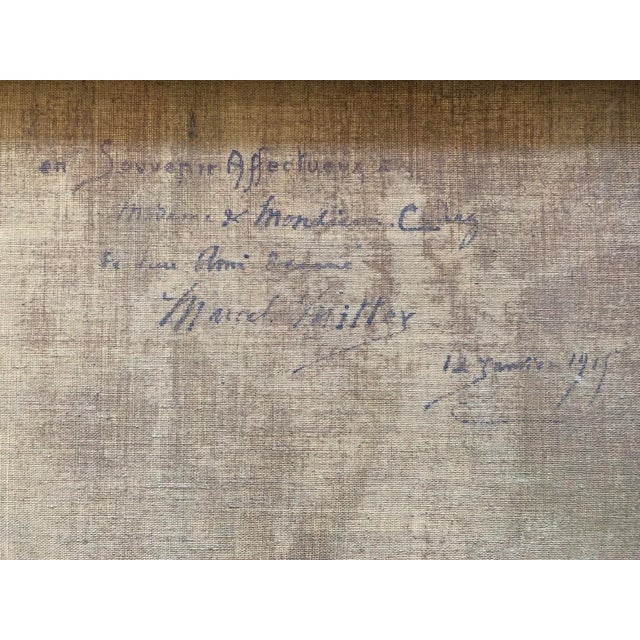 en Souvenir Affectueux à
Madame & Monsieur
de leur Ami
Marcel
12 Janvier 1915